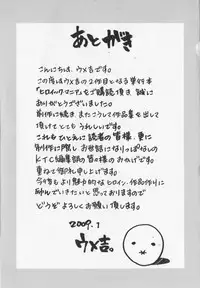 あとがき
こんにちは、ウメ吉です。
この度はウメ吉の2作目となる単行本
「ヒロイックマニア」をご購読頂き誠に
ありがとうございました。
前作に続き、またこうして作品集を出して
頂けてとてもうれしいです。
これもひとえに読者の皆様、更に
制作に際し、お世話になりっぱなしの
KTC編集部の皆様のおかげです。
重ねて御礼申し上げます。
今後もより魅力的なヒロイン、作品作りに
励んでいきたいと思っておりますので
どうぞよろしくお願い致します。
2009.1
ウメ吉。